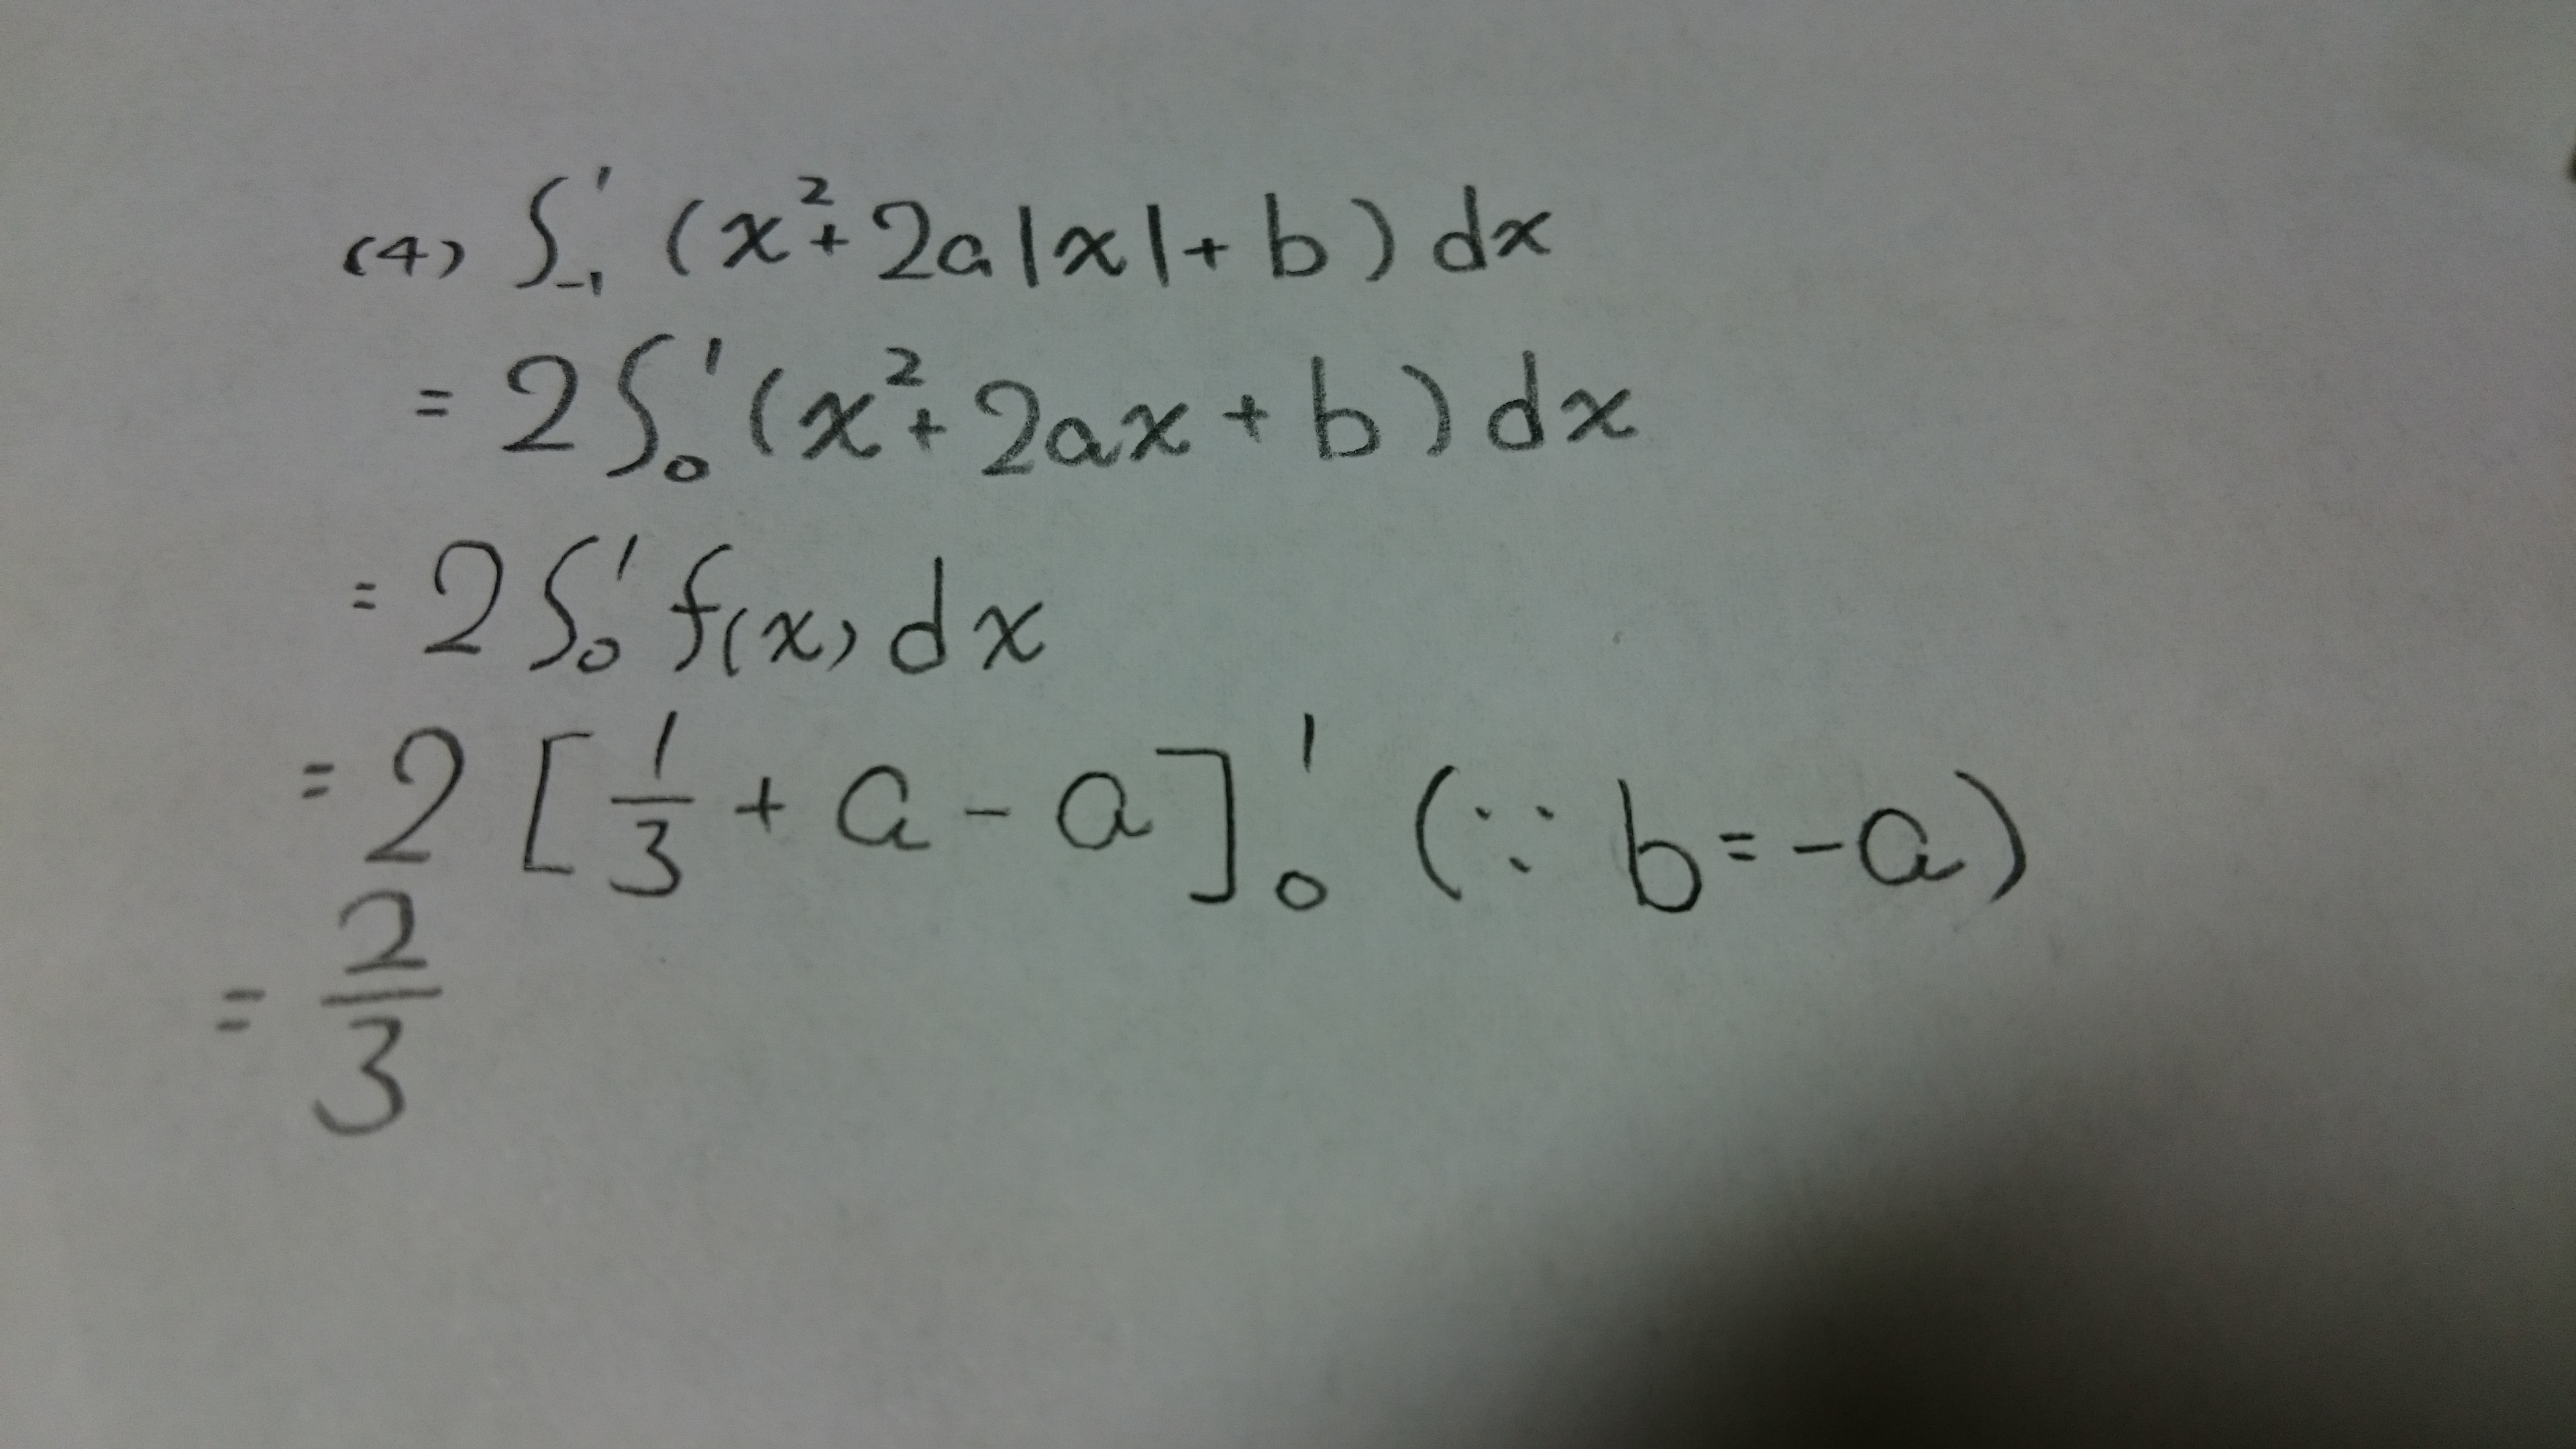 (4) ∫₋₁¹ (x²+2a|x|+b) dx
= 2∫₀¹ (x²+2ax+b) dx
= 2∫₀¹ f(x) dx
= 2 [1/3 + a - a]₀¹ (∵ b=-a)
= 2/3